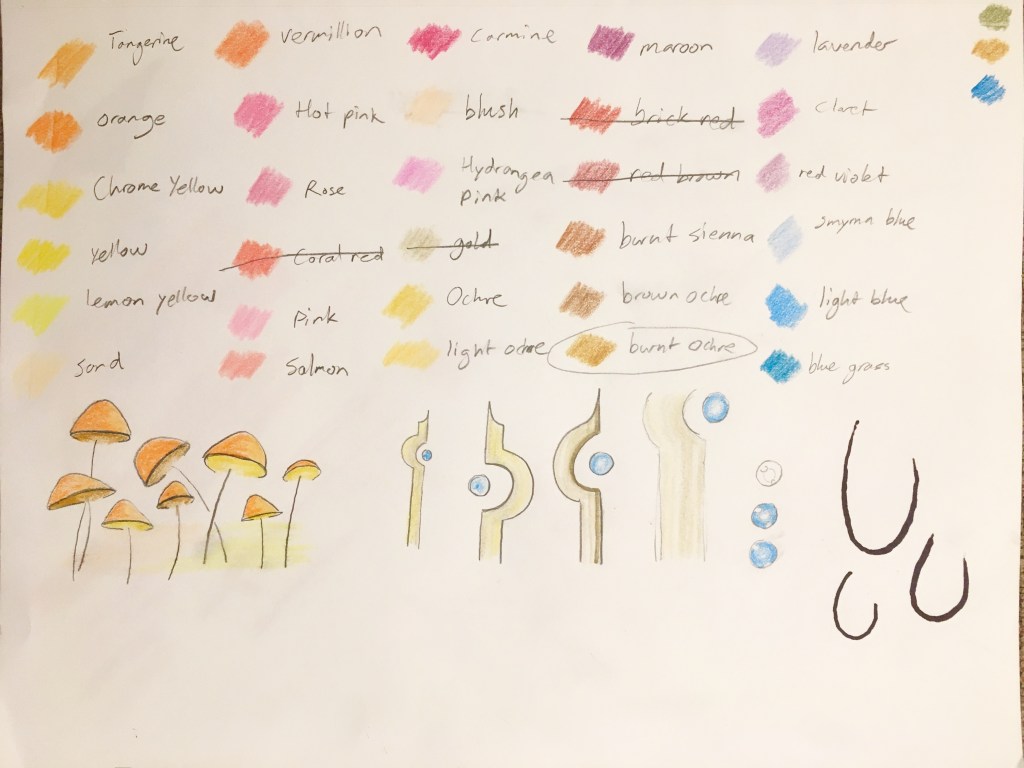 Tangerine
vermillion
Carmine
maroon
lavender
orange
Hot pink
blush
brick red
Claret
Chrome Yellow
Rose
Hydrangea
pink
red brown
red violet
yellow
Coral red
gold
burnt sienna
smyrna blue
lemon yellow
pink
Ochre
brown ochre
light blue
sand
Salmon
light ochre
burnt ochre
blue grass